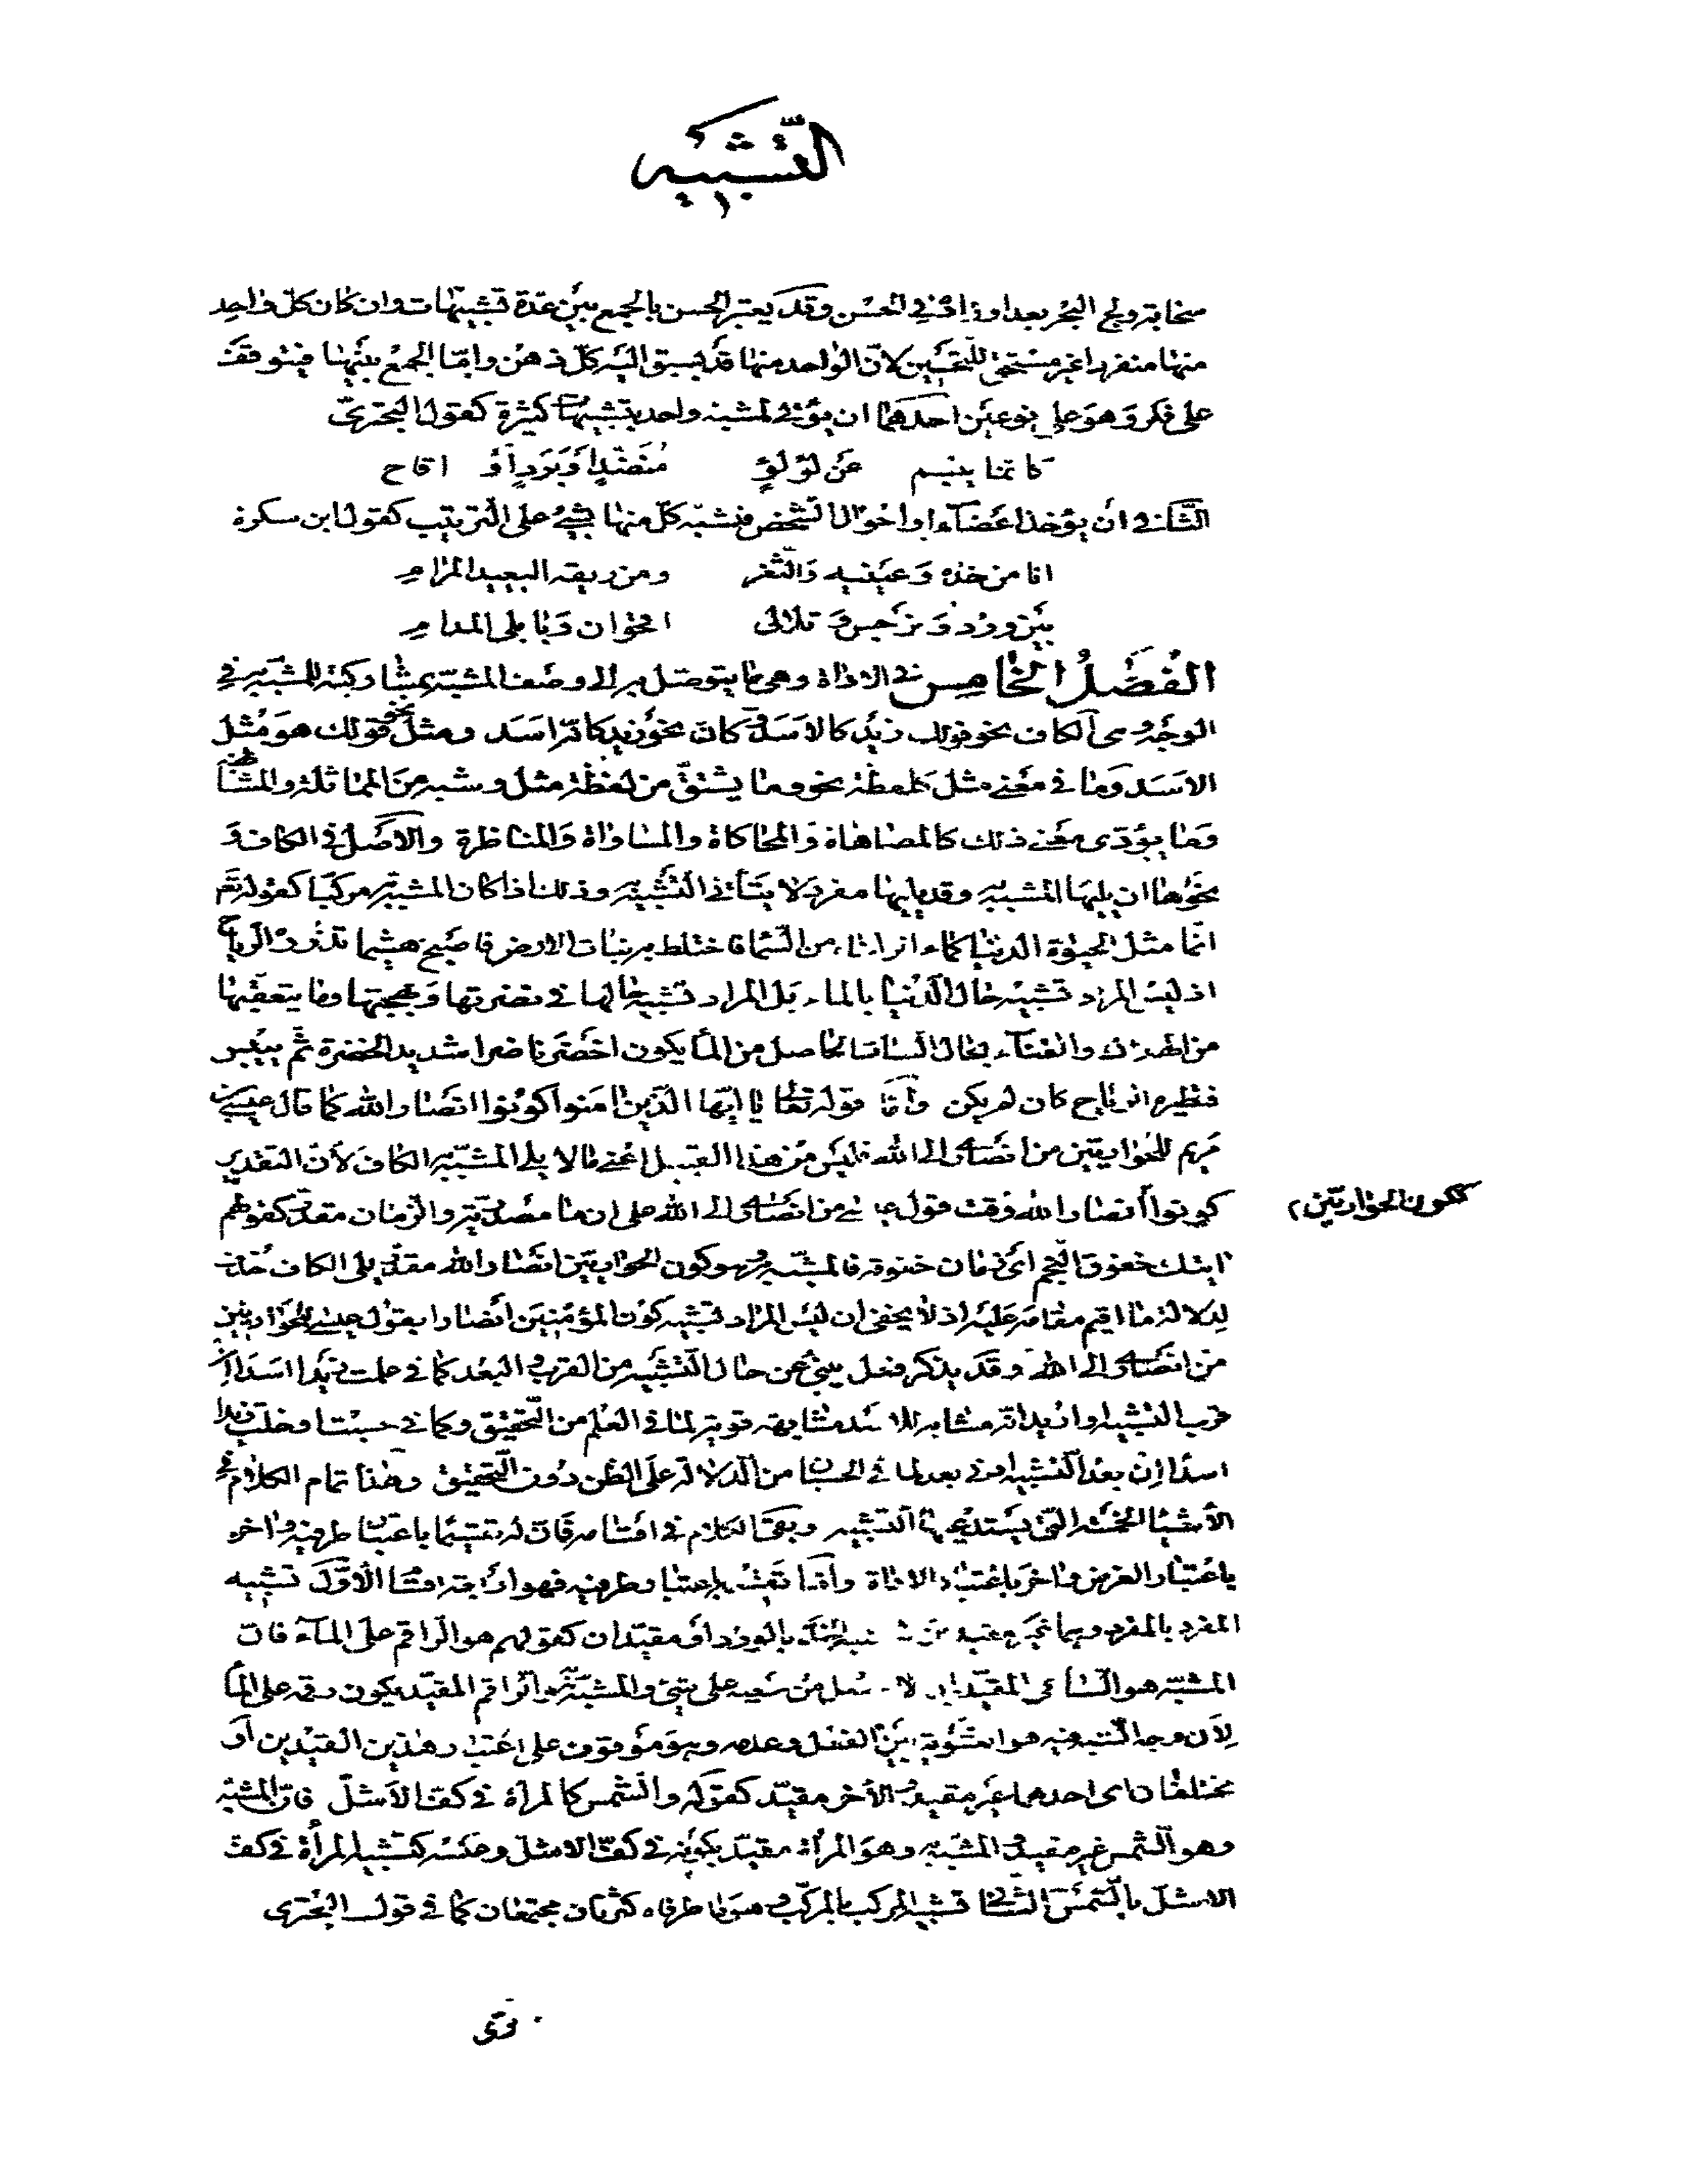 التشبيه
منها منفردا غير مستحق للتحسين لانّ الواحد منها قد يسبق اليه كلّ ذهن وامّا الجمع بينها فيتوقف
على فكر وهو على نوعين احدهما ان يؤتى لمشبه واحد بتشبيهات كثيرة كقول البحتريّ
كانما يبسم عن لؤلؤٍ منضّدٍ أو بَرَدٍ أو اقاح
الثّاني ان يؤخذ اعضاء او احوال الشخص فيشبّه كلّ منها بشيء على الترتيب كقول ابن سكرة
انا من خدّه وعينيه والثّغر ومن ريقه البعيد المرام
بين ورد ونرجس وتلالى اقحوان وبابلى المدام
الفصل الخامس في الاداة وهى ما يتوصّل به الى وصف المشبّه بمشاركته للمشبّه به في
الوجه وهى الكاف نحو قولك زيد كالاسد وكانّ نحو زيد كانّه اسد ومثل نحو قولك هو مثل
الاسد وما في معنى مثل كلفظة نحو وما يشتقّ من لفظة مثل وشبه من المماثلة والمشابهة
وما يؤدّى معنى ذلك كالمضاهاة والمحاكاة والمساواة والمناظرة والاصل في الكاف و
نحوها ان يليها المشبه به وقد يليها مفرد لا يتأتى التشبيه به وذلك اذا كان المشبه به مركبا كقوله تع
انّما مثل الحيوة الدنيا كماء انزلناه من السّماء فاختلط به نبات الارض فاصبح هشيما تذروه الرياح
اذ ليس المراد تشبيه حال الدّنيا بالماء بل المراد تشبيه حالها في نضرتها وبهجتها وما يتعقّبها
من الهلاك والفناء بحال النبات الحاصل من الماء يكون اخضر ناضرا شديد الخضرة ثمّ ييبس
فتطيره الرياح كان لم يكن وأمّا قوله تعالى يا ايّها الذّين امنوا كونوا انصار الله كما قال عيسى بن
مريم للحواريّين من انصارى الى الله فليس من هذا القبيل اعنى ما لا يلى المشبّه به الكاف لأنّ التقدير
كونوا أنصار الله وقت قول عيسى من انصارى الى الله على ان ما مصدريّة والزمان مقدّر كقولهم
ككون الحواريّين
اتيتك خفوق النجم اى زمان خفوقه فالمشبّه به وهو كون الحواريّين انصار الله مقدّر يلى الكاف حذف
لدلالة ما اقيم مقامه عليه اذ لا يخفى ان ليس المراد تشبيه كون المؤمنين أنصارا بقول عيسى للحواريّين
من انصارى الى الله وقد يذكر فعل ينبئ عن حال التشبيه من القرب والبعد كما في علمت زيدا اسدا ان
قرب التشبيه واريد انّه مشابه للاسد مشابهة قوية لما في العلم من التّحقيق وكما في حسبت او خلت زيدا
اسدا ان بعد التشبيه ادنى بعد لما في الحسبان من الدّلالة على الظن دون التحقيق وهذا تمام الكلام في
الأشياء الخمسة التى يستدعيها التشبيه وبقى الكلام في اقسامه فانّ له تقسيما باعتبار طرفيه واخر
باعتبار الغرض واخر باعتبار الاداة وأمّا تقسيمه باعتبار طرفيه فهو اربعة اقسام الاوّل تشبيه
المفرد بالمفرد وهما غير مقيدين كتشبيه الخدّ بالورد أو مقيّدان كقولهم هو الراقم على الماء فانّ
المشبّه هو السّاعى المقيّد بان لا يحصل من سعيه على شئ والمشبّه به هو الراقم المقيّد بكون رقمه على الماء
لأن وجه الشبه فيه هو التسوية بين الفعل وعدمه وهو موقوف على اعتبار هذين القيدين أو
مختلفان اى احدهما غير مقيد والآخر مقيّد كقوله والشّمس كالمرأة في كفّ الاشلّ فانّ المشبّه
وهو الشّمس غير مقيد والمشبه به وهو المرأة مقيّد بكونه في كفّ الاشل وعكسه كتشبيه المرأة في كفّ
الاشلّ بالشّمس الثّانى تشبيه المركب بالمركّب وهو ما طرفاه كثرتان مجتمعتان كما في قول البحترى